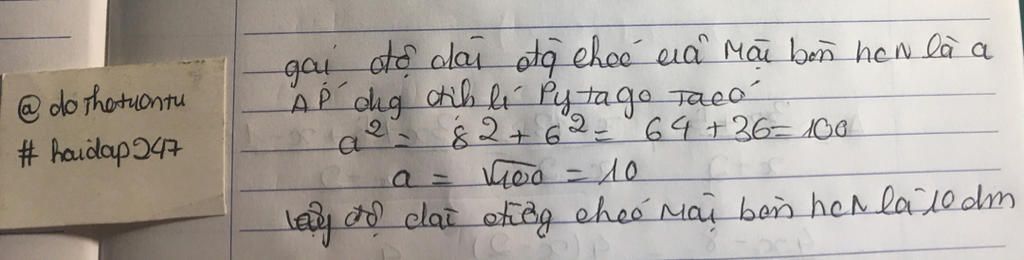 @ dothetuantu
# hoidap247
gọi độ dài đg chéo của mặt bàn hcn là a
Áp dụng định lí Pytago ta có
a² = 8² + 6² = 64 + 36 = 100
a = √100 = 10
vậy độ dài đường chéo mặt bàn hcn là 10 dm